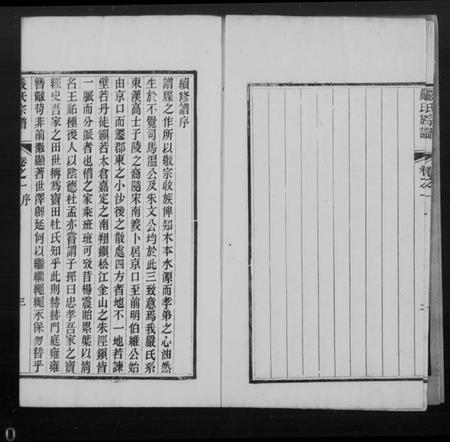 嚴氏宗譜
卷之一
續修譜序
譜牒之作所以敬宗收族俾知木本水源而孝弟之心油然
生於不覺司馬温公及朱文公均於此三致意焉我嚴氏系
東漢高士子陵之裔隨宋南渡卜居京口至前明伯維公始
由京口而遷郡東之小沙後之散處四方者地不一地若諫
壁若丹徒鎮若太倉嘉定之南翔鎮松江金山之朱涇鎮皆
一脈而分派者也稽之家乘班班可攷昔楊震貽累葉以清
名王祐種後人以陰德杜孟亦嘗謂子孫曰忠孝吾家之寶
經史吾家之田世稱爲寶田杜氏知乎此則赫赫門庭雍雍
簪黻苟非前徽顯著世澤縣延何以繼繼繩繩永保勿替乎
嚴氏宗譜
卷之一 序
三